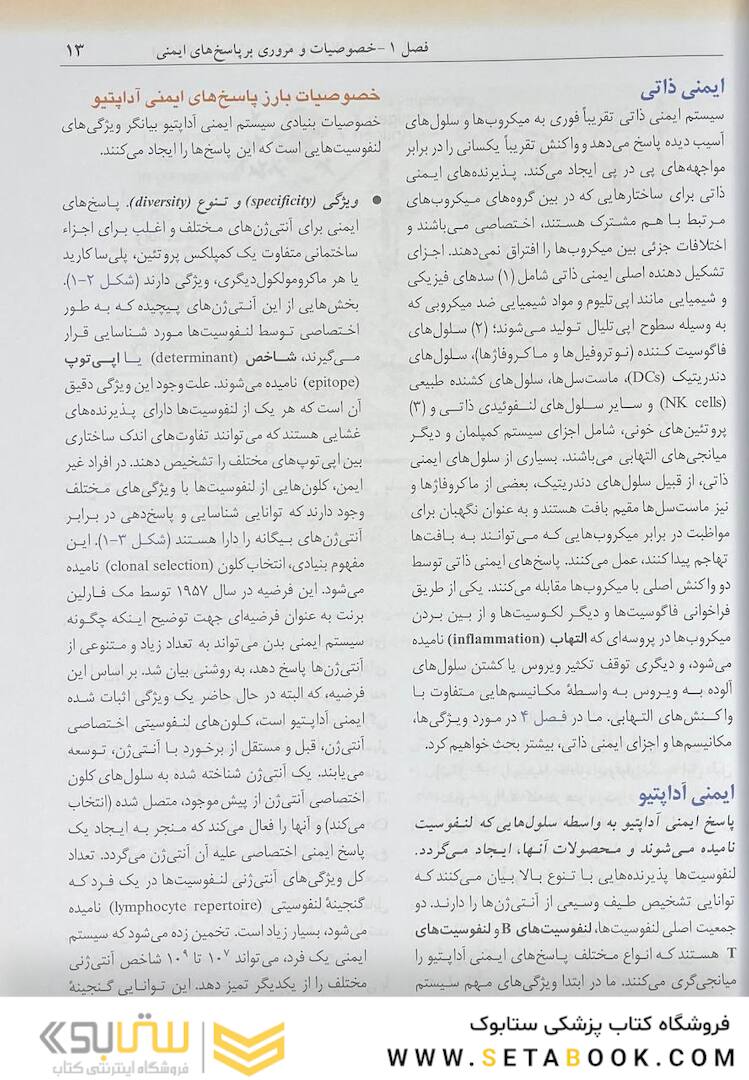 فصل ۱ -خصوصیات و مروری بر پاسخ‌های ایمنی
۱۳
ایمنی ذاتی
سیستم ایمنی ذاتی تقریباً فوری به میکروب‌ها و سلول‌های
آسیب دیده پاسخ می‌دهد و واکنش تقریباً یکسانی را در برابر
مواجهه‌های پی در پی ایجاد می‌کند. پذیرنده‌های ایمنی
ذاتی برای ساختارهایی که در بین گروه‌های میکروب‌های
مرتبط با هم مشترک هستند، اختصاصی می‌باشند و
اختلافات جزئی بین میکروب‌ها را افتراق نمی‌دهند. اجزای
تشکیل دهنده اصلی ایمنی ذاتی شامل (۱) سدهای فیزیکی
و شیمیایی مانند اپی‌تلیوم و مواد شیمیایی ضد میکروبی که
به وسیله سطوح اپی‌تلیال تولید می‌شوند؛ (۲) سلول‌های
فاگوسیت کننده (نوتروفیل‌ها و ماکروفاژها)، سلول‌های
دندریتیک (DCs)، ماست‌سل‌ها، سلول‌های کشنده طبیعی
(NK cells) و سایر سلول‌های لنفوئیدی ذاتی و (۳)
پروتئین‌های خونی، شامل اجزای سیستم کمپلمان و دیگر
میانجی‌های التهابی می‌باشند. بسیاری از سلول‌های ایمنی
ذاتی، از قبیل سلول‌های دندریتیک، بعضی از ماکروفاژها و
نیز ماست‌سل‌ها مقیم بافت هستند و به عنوان نگهبان برای
مواظبت در برابر میکروب‌هایی که می‌توانند به بافت‌ها
تهاجم پیدا کنند، عمل می‌کنند. پاسخ‌های ایمنی ذاتی توسط
دو واکنش اصلی با میکروب‌ها مقابله می‌کنند. یکی از طریق
فراخوانی فاگوسیت‌ها و دیگر لکوسیت‌ها و از بین بردن
میکروب‌ها در پروسه‌ای که التهاب (inflammation) نامیده
می‌شود، و دیگری توقف تکثیر ویروس یا کشتن سلول‌های
آلوده به ویروس به واسطهٔ مکانیسم‌هایی متفاوت با
واکنش‌های التهابی. ما در فصل ۴ در مورد ویژگی‌ها،
مکانیسم‌ها و اجزای ایمنی ذاتی، بیشتر بحث خواهیم کرد.
ایمنی آداپتیو
پاسخ ایمنی آداپتیو به واسطه سلول‌هایی که لنفوسیت
نامیده می‌شوند و محصولات آنها، ایجاد می‌گردد.
لنفوسیت‌ها پذیرنده‌هایی با تنوع بالا بیان می‌کنند که
توانایی تشخیص طیف وسیعی از آنتی‌ژن‌ها را دارند. دو
جمعیت اصلی لنفوسیت‌ها، لنفوسیت‌های B و لنفوسیت‌های
T هستند که انواع مختلف پاسخ‌های ایمنی آداپتیو را
میانجی‌گری می‌کنند. ما در ابتدا ویژگی‌های مهم سیستم
خصوصیات بارز پاسخ‌های ایمنی آداپتیو
خصوصیات بنیادی سیستم ایمنی آداپتیو بیانگر ویژگی‌های
لنفوسیت‌هایی است که این پاسخ‌ها را ایجاد می‌کنند.
● ویژگی (specificity) و تنوع (diversity). پاسخ‌های
ایمنی برای آنتی‌ژن‌های مختلف و اغلب برای اجزاء
ساختمانی متفاوت یک کمپلکس پروتئین، پلی‌ساکارید
یا هر ماکرومولکول دیگری، ویژگی دارند (شکل ۲-۱).
بخش‌هایی از این آنتی‌ژن‌های پیچیده که به طور
اختصاصی توسط لنفوسیت‌ها مورد شناسایی قرار
می‌گیرند، شاخص (determinant) یا اپی‌توپ
(epitope) نامیده می‌شوند. علت وجود این ویژگی دقیق
آن است که هر یک از لنفوسیت‌ها دارای پذیرنده‌های
غشایی هستند که می‌توانند تفاوت‌های اندک ساختاری
بین اپی‌توپ‌های مختلف را تشخیص دهند. در افراد غیر
ایمن، کلون‌هایی از لنفوسیت‌ها با ویژگی‌های مختلف
وجود دارند که توانایی شناسایی و پاسخ‌دهی در برابر
آنتی‌ژن‌های بیگانه را دارا هستند (شکل ۳-۱). این
مفهوم بنیادی، انتخاب کلون (clonal selection) نامیده
می‌شود. این فرضیه در سال ۱۹۵۷ توسط مک فارلین
برنت به عنوان فرضیه‌ای جهت توضیح اینکه چگونه
سیستم ایمنی بدن می‌تواند به تعداد زیاد و متنوعی از
آنتی‌ژن‌ها پاسخ دهد، به روشنی بیان شد. بر اساس این
فرضیه، که البته در حال حاضر یک ویژگی اثبات شده
ایمنی آداپتیو است، کلون‌های لنفوسیتی اختصاصی
آنتی‌ژن، قبل و مستقل از برخورد با آنتی‌ژن، توسعه
می‌یابند. یک آنتی‌ژن شناخته شده به سلول‌های کلون
اختصاصی آنتی‌ژن از پیش موجود، متصل شده (انتخاب
می‌کند) و آنها را فعال می‌کند که منجر به ایجاد یک
پاسخ ایمنی اختصاصی علیه آن آنتی‌ژن می‌گردد. تعداد
کل ویژگی‌های آنتی‌ژنی لنفوسیت‌ها در یک فرد که
گنجینهٔ لنفوسیتی (lymphocyte repertoire) نامیده
می‌شود، بسیار زیاد است. تخمین زده می‌شود که سیستم
ایمنی یک فرد، می‌تواند ۱۰⁷ تا ۱۰⁹ شاخص آنتی‌ژنی
مختلف را از یکدیگر تمیز دهد. این توانایی گنجینهٔ
ستابوک
فروشگاه اینترنتی کتاب
فروشگاه کتاب پزشکی ستابوک
WWW.SETABOOK.COM